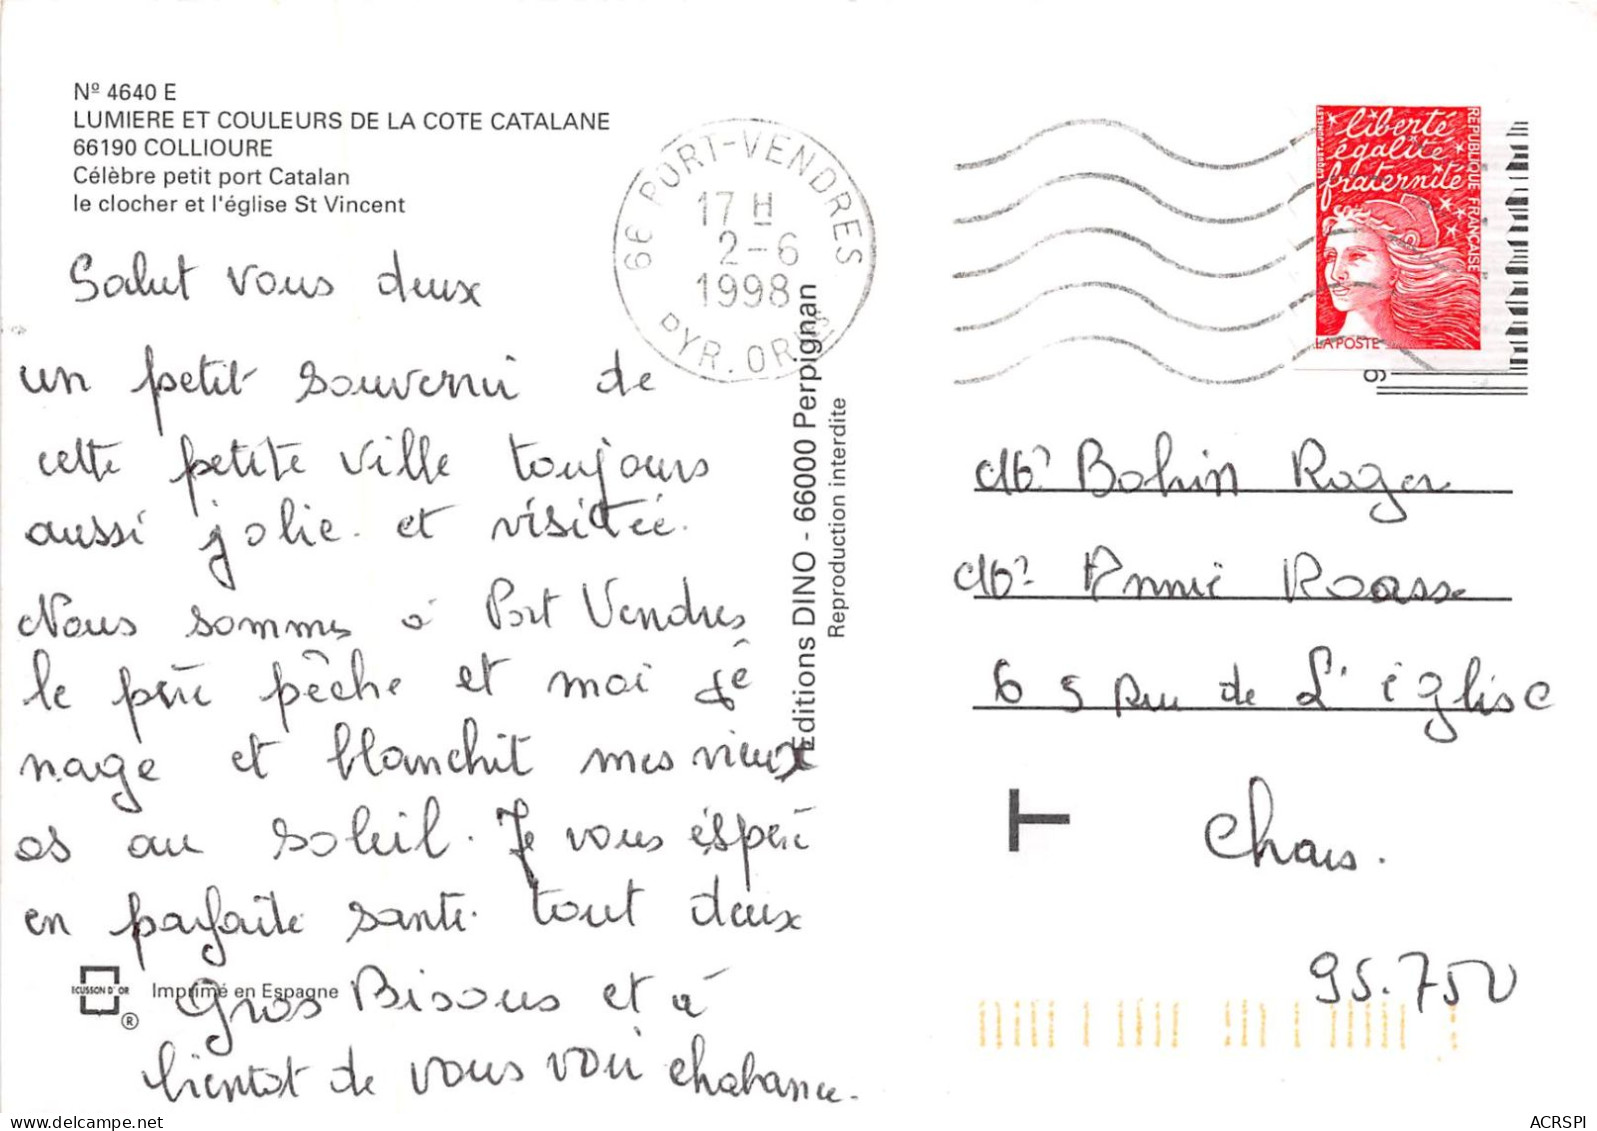 Nº 4640 E
LUMIERE ET COULEURS DE LA COTE CATALANE
66190 COLLIOURE
Célèbre petit port Catalan
le clocher et l'église St Vincent
Salut vous deux
un petit souvenir de
cette petite ville toujours
aussi jolie. et visitée.
Nous sommes à Port Vendres
le père pêche et moi je
nage et blanchit mes vieux
os au soleil. Je vous éspère
en parfaite santé. tout deux
Gros Bisous et à
bientot de vous voir
ECUSSON D'OR
®
Imprimé en Espagne
66 PORT-VENDRES
17 H
2-6
1998
PYR. ORIES
Editions DINO - 66000 Perpignan
Reproduction interdite
liberté
égalité
fraternité
REPUBLIQUE FRANÇAISE
LUQUET-JUMELET
LA POSTE
9
Bohin Roger
Annie
65 Rue de L'église
T
Chars.
95.750
ACRSPI